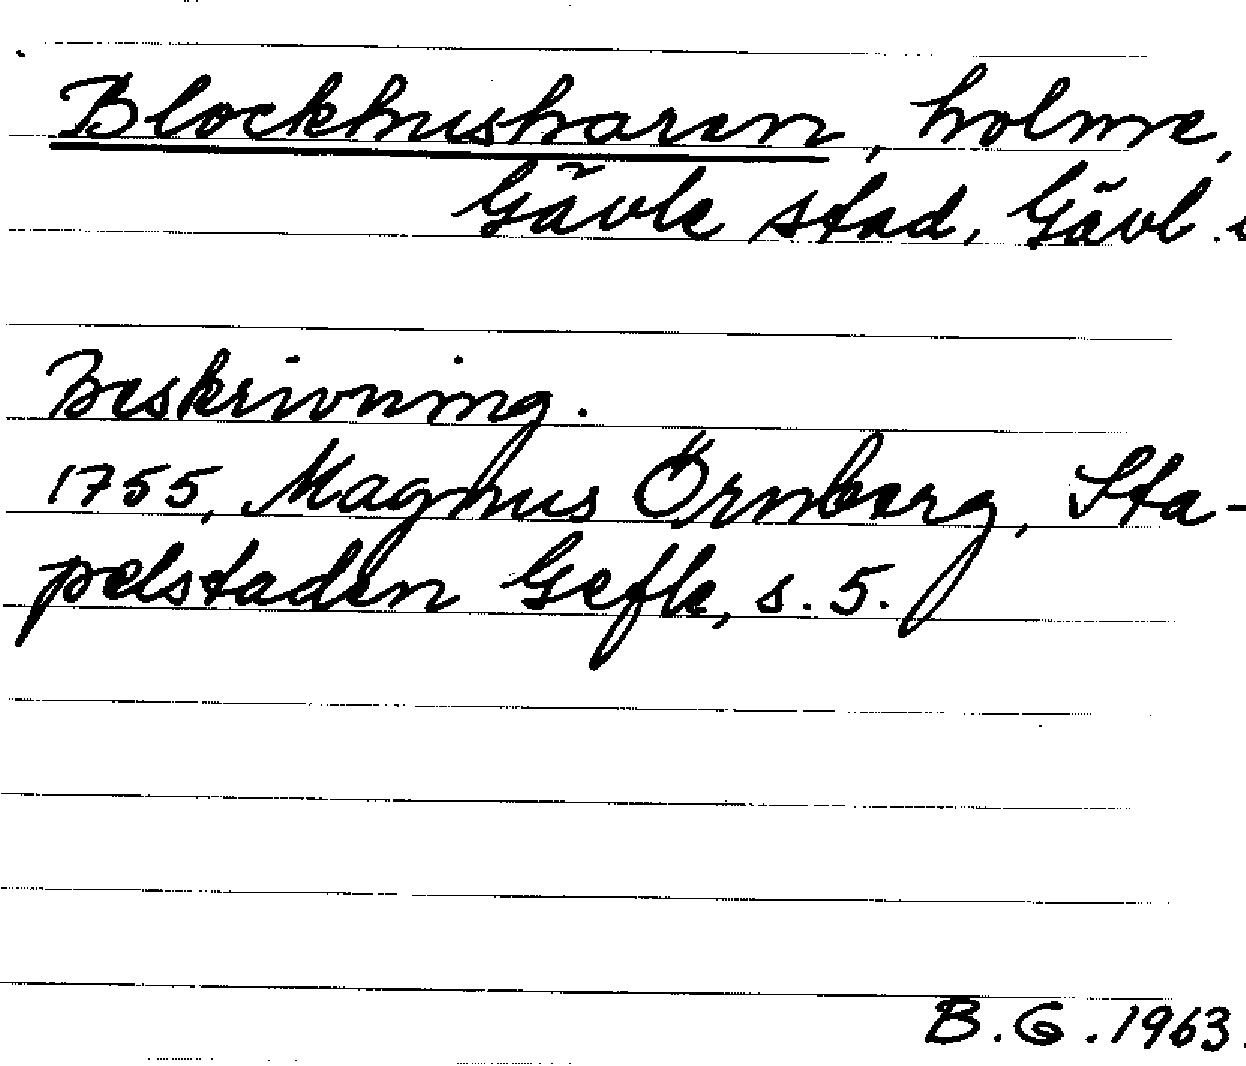 Blockhusharen, holme,
Gävle stad, Gävl.
Beskrivning.
1755, Magnus Örnberg, Sta-
pelstaden Gefle, s. 5.
B.G. 1963.